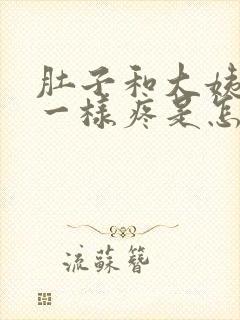 肚子和大姨
一样疼是怎
流蘇簪